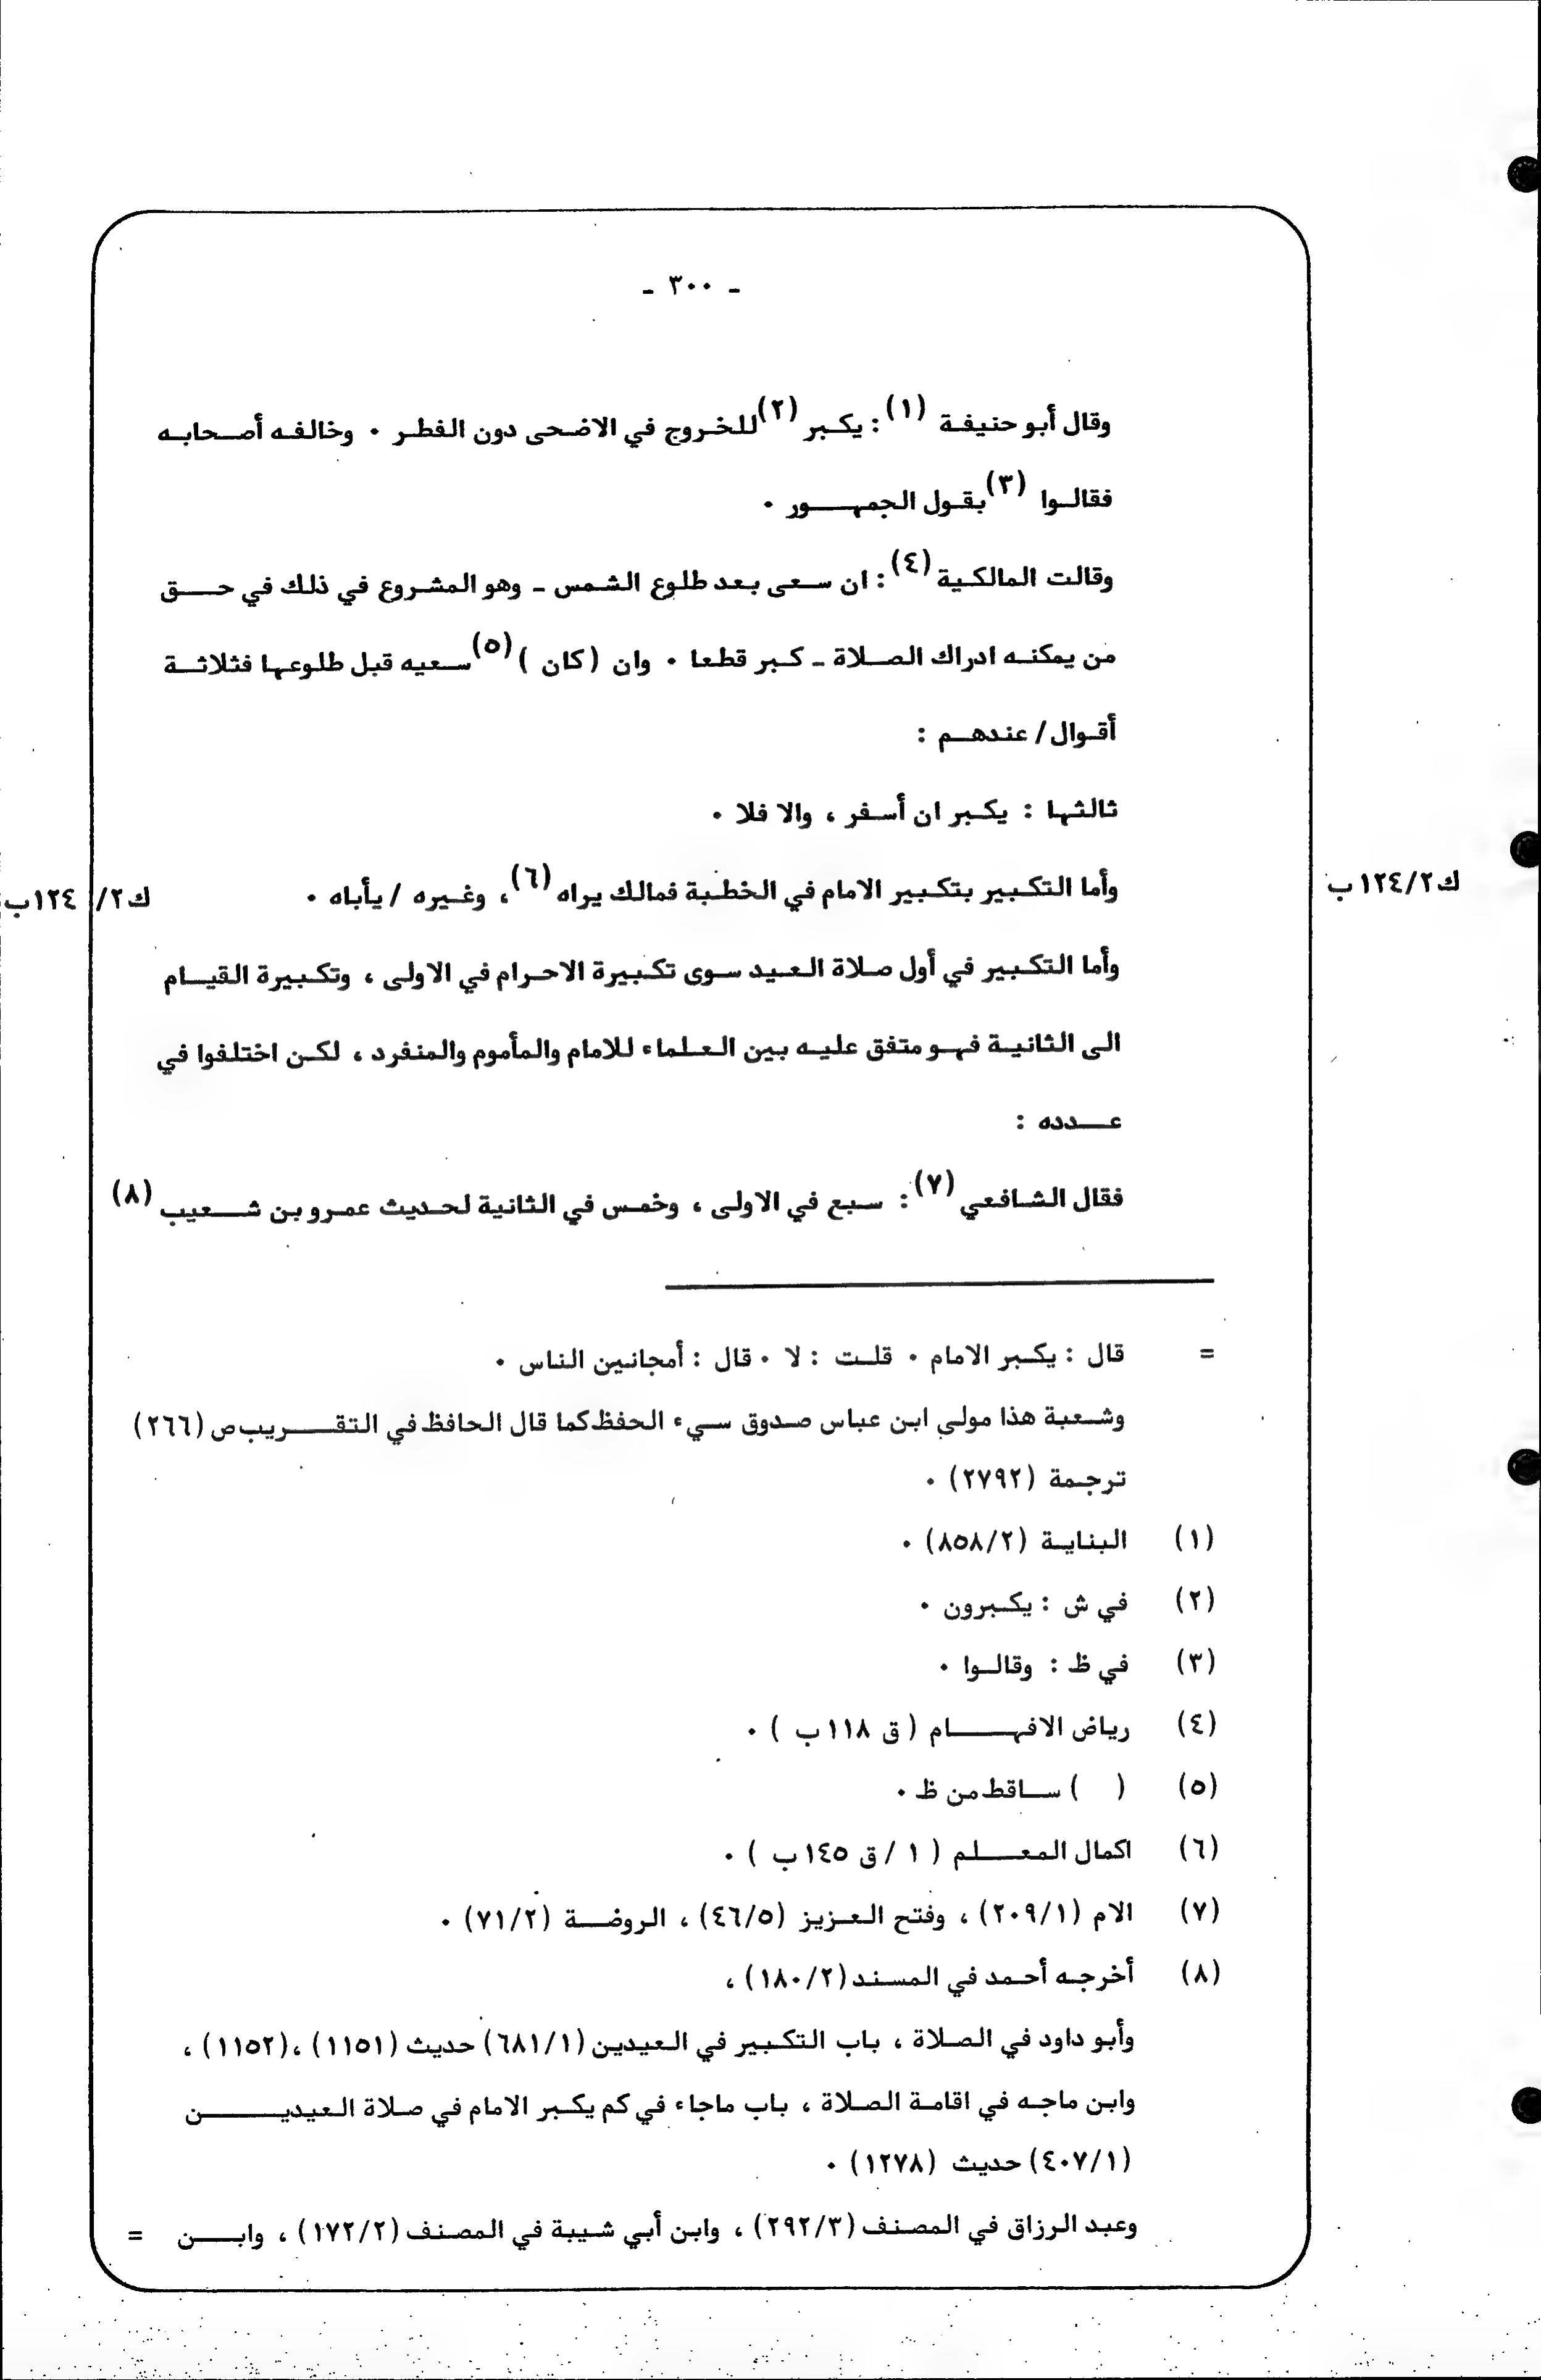 - ٣٠٠ -
وقال أبو حنيفة (١) : يكبر (٢) للخروج في الاضحى دون الفطر ٠ وخالفه أصحابه
فقالوا (٣) بقول الجمهور ٠
وقالت المالكية (٤) : ان سعى بعد طلوع الشمس - وهو المشروع في ذلك في حق
من يمكنه ادراك الصلاة - كبر قطعا ٠ وان ( كان ) (٥) سعيه قبل طلوعها فثلاثة
أقوال / عندهم :
ثالثها : يكبر ان أسفر ، والا فلا ٠
ك١٢٤/٢ب
وأما التكبير بتكبير الامام في الخطبة فمالك يراه (٦) ، وغيره / يأباه ٠ ك٢/ ١٢٤ب
وأما التكبير في أول صلاة العيد سوى تكبيرة الاحرام في الاولى ، وتكبيرة القيام
الى الثانية فهو متفق عليه بين العلماء للامام والمأموم والمنفرد ، لكن اختلفوا في
عدده :
فقال الشافعي (٧) : سبع في الاولى ، وخمس في الثانية لحديث عمرو بن شعيب (٨)
= قال : يكبر الامام ٠ قلت : لا ٠ قال : أمجانين الناس ٠
وشعبة هذا مولى ابن عباس صدوق سيء الحفظ كما قال الحافظ في التقريب ص (٢٦٦)
ترجمة (٢٧٩٢) ٠
(١) البناية (٨٥٨/٢) ٠
(٢) في ش : يكبرون ٠
(٣) في ظ : وقالوا ٠
(٤) رياض الافهام ( ق ١١٨ ب ) ٠
(٥) ( ) ساقط من ظ ٠
(٦) اكمال المعلم ( ١ / ق ١٤٥ ب ) ٠
(٧) الام (٢٠٩/١) ، وفتح العزيز (٤٦/٥) ، الروضة (٧١/٢) ٠
(٨) أخرجه أحمد في المسند (١٨٠/٢) ،
وأبو داود في الصلاة ، باب التكبير في العيدين (٦٨١/١) حديث (١١٥١) ، (١١٥٢) ،
وابن ماجه في اقامة الصلاة ، باب ماجاء في كم يكبر الامام في صلاة العيدين
(٤٠٧/١) حديث (١٢٧٨) ٠
وعبد الرزاق في المصنف (٢٩٢/٣) ، وابن أبي شيبة في المصنف (١٧٢/٢) ، وابن =